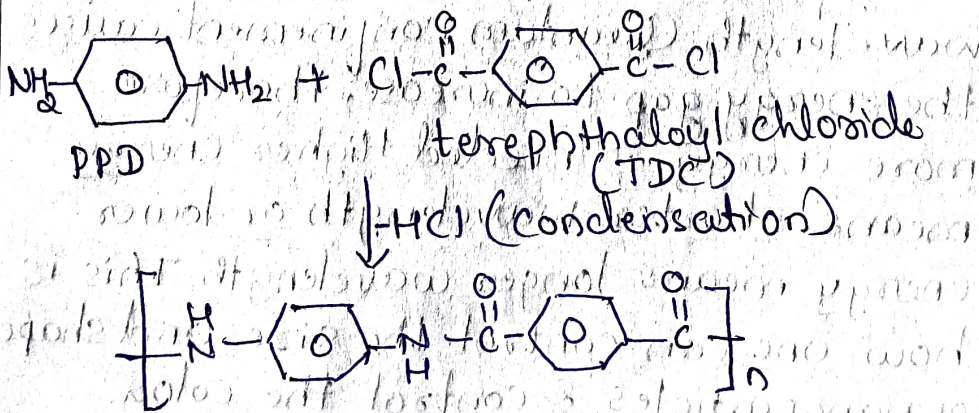 NH2-⌬-NH2 + Cl-C(=O)-⌬-C(=O)-Cl
PPD terephthaloyl chloride
(TDC)
↓-HCl (condensation)
[-N(H)-⌬-N(H)-C(=O)-⌬-C(=O)-]n